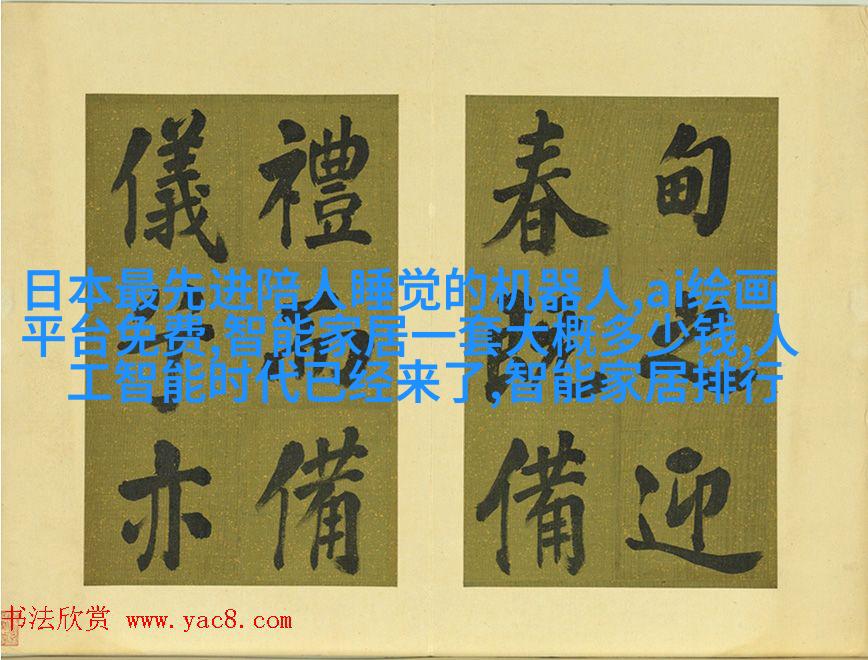 甸之迎
春備
禮備
儀亦
日本最先进陪人睡觉的机器人,ai绘画
平台免费,智能家居一套大概多少钱,人
工智能时代已经来了,智能家居排行
书法欣赏 www.yac8.com